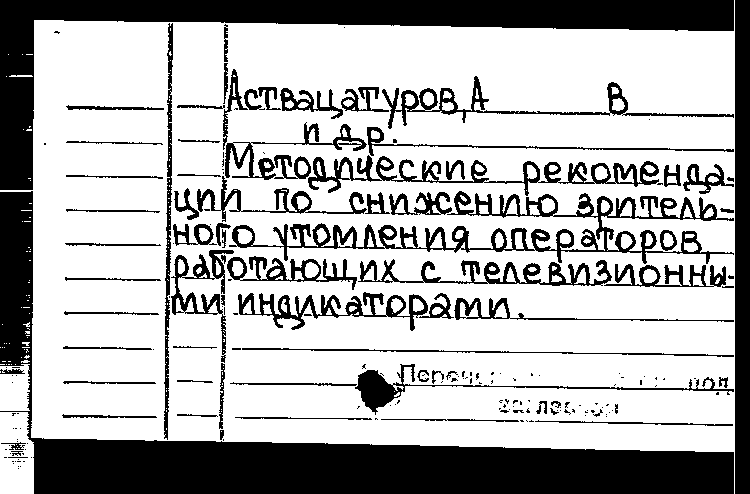 Аствацатуров, А В
и др.
Методические рекоменда-
ции по снижению зритель-
ного утомления операторов,
работающих с телевизионны-
ми индикаторами.
под